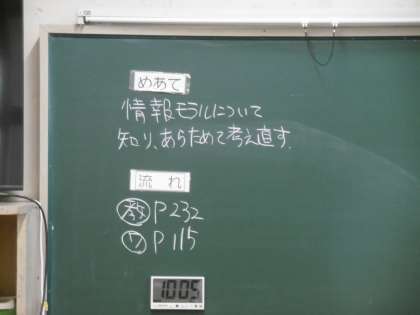 めあて
情報モラルについて
知り、あらためて考え直す。
流れ
教 P232
ワ P115
10:05